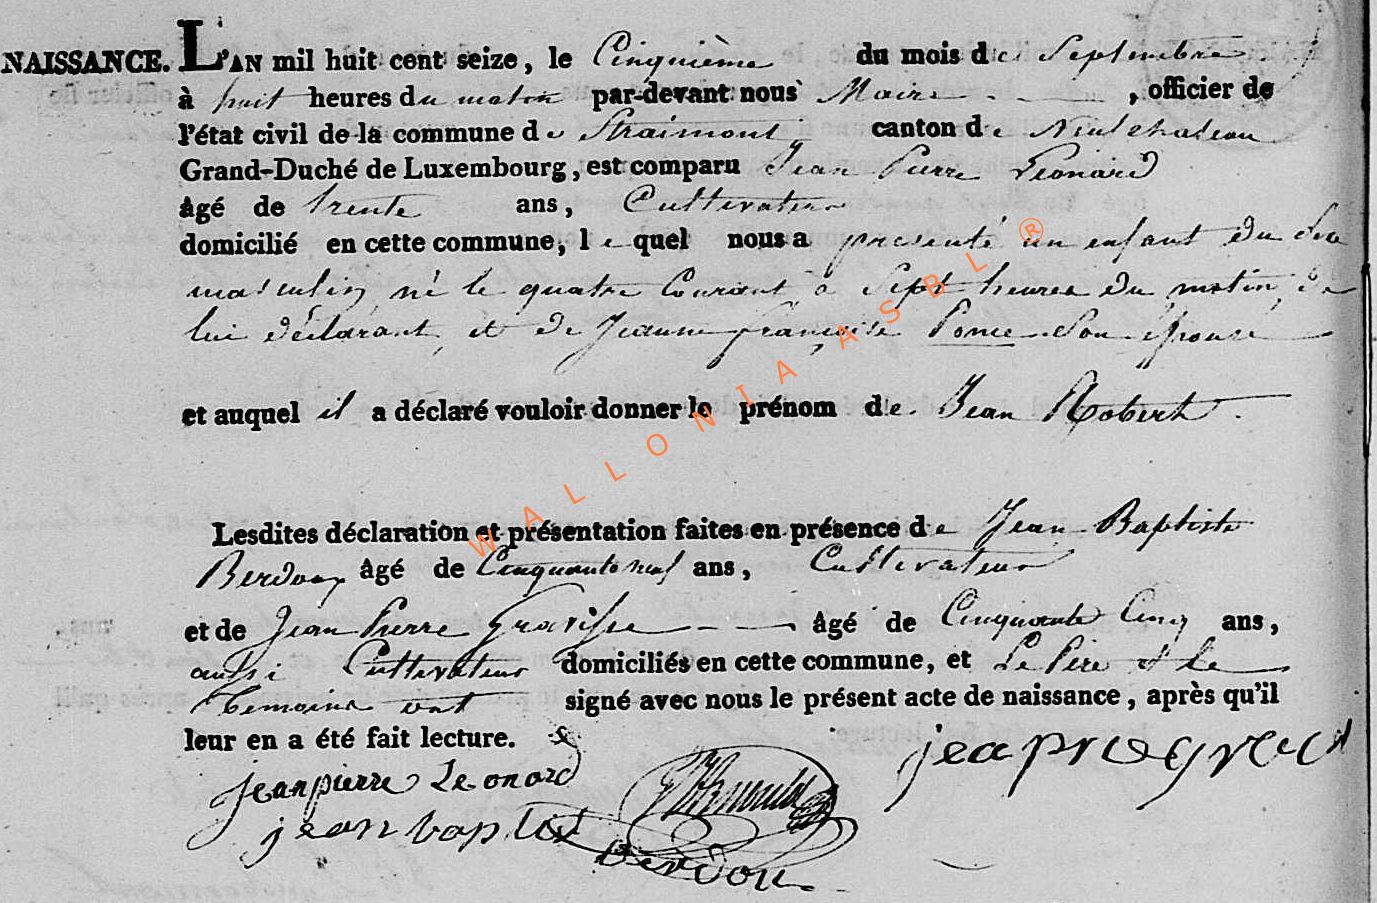 NAISSANCE. L'AN mil huit cent seize, le Cinquième du mois de Septembre
à huit heures du matin par-devant nous Maire, officier de
l'état civil de la commune de Straimont canton de Neufchateau
Grand-Duché de Luxembourg, est comparu Jean Pierre Leonard
âgé de trente ans, Cultivateur
domicilié en cette commune, le quel nous a presenté un enfant du sexe
masculin, né le quatre Courant, à Sept heures du matin, de
lui déclarant, et de Jeanne françoise Ponce Son épouse
et auquel il a déclaré vouloir donner le prénom de Jean Robert.
Lesdites déclaration et présentation faites en présence de Jean Baptiste
Berdoux âgé de Cinquante neuf ans, Cultivateur
et de Jean Pierre âgé de Cinquante Cinq ans,
aussi Cultivateur domiciliés en cette commune, et Le Pere et le
Temoins ont signé avec nous le présent acte de naissance, après qu'il
leur en a été fait lecture.
jeanpierre Leonard
jean baptist
berdou
WALLONIA ASBL ®